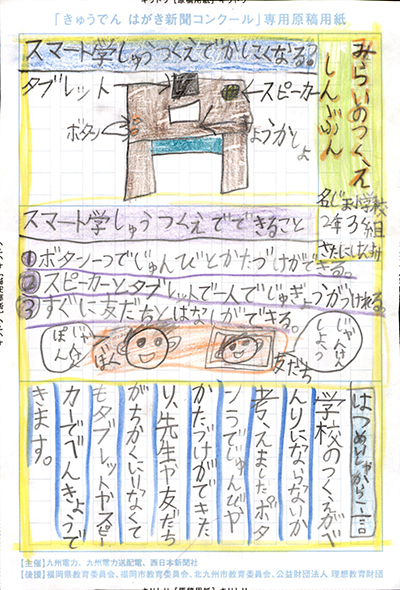 「きゅうでん はがき新聞コンクール」専用原稿用紙
みらいのつくえ
しんぶん
2年3組
スマート学しゅうつくえでかしこくなる?
タブレット
スピーカー
ボタン
スマート学しゅうつくえでできること
①ボタン一つでじゅんびとかたづけができる。
②スピーカーとタブレットで一人でじゅぎょうがうけれる。
③すぐに友だちとはなしができる。
じゃんけん
しよう
友だち
ぼく
じゃんけん
ぽん
はつめいしゃから一言
学校のつくえがべ
んりにならないか
考えました。ボタ
ン一つでじゅんびや
かたづけができた
り、先生や友だち
がちかくにいなくて
もタブレットやスピー
カーでべんきょうで
きます。
【主催】九州電力、九州電力送配電、西日本新聞社
【後援】福岡県教育委員会、福岡市教育委員会、北九州市教育委員会、公益財団法人 理想教育財団